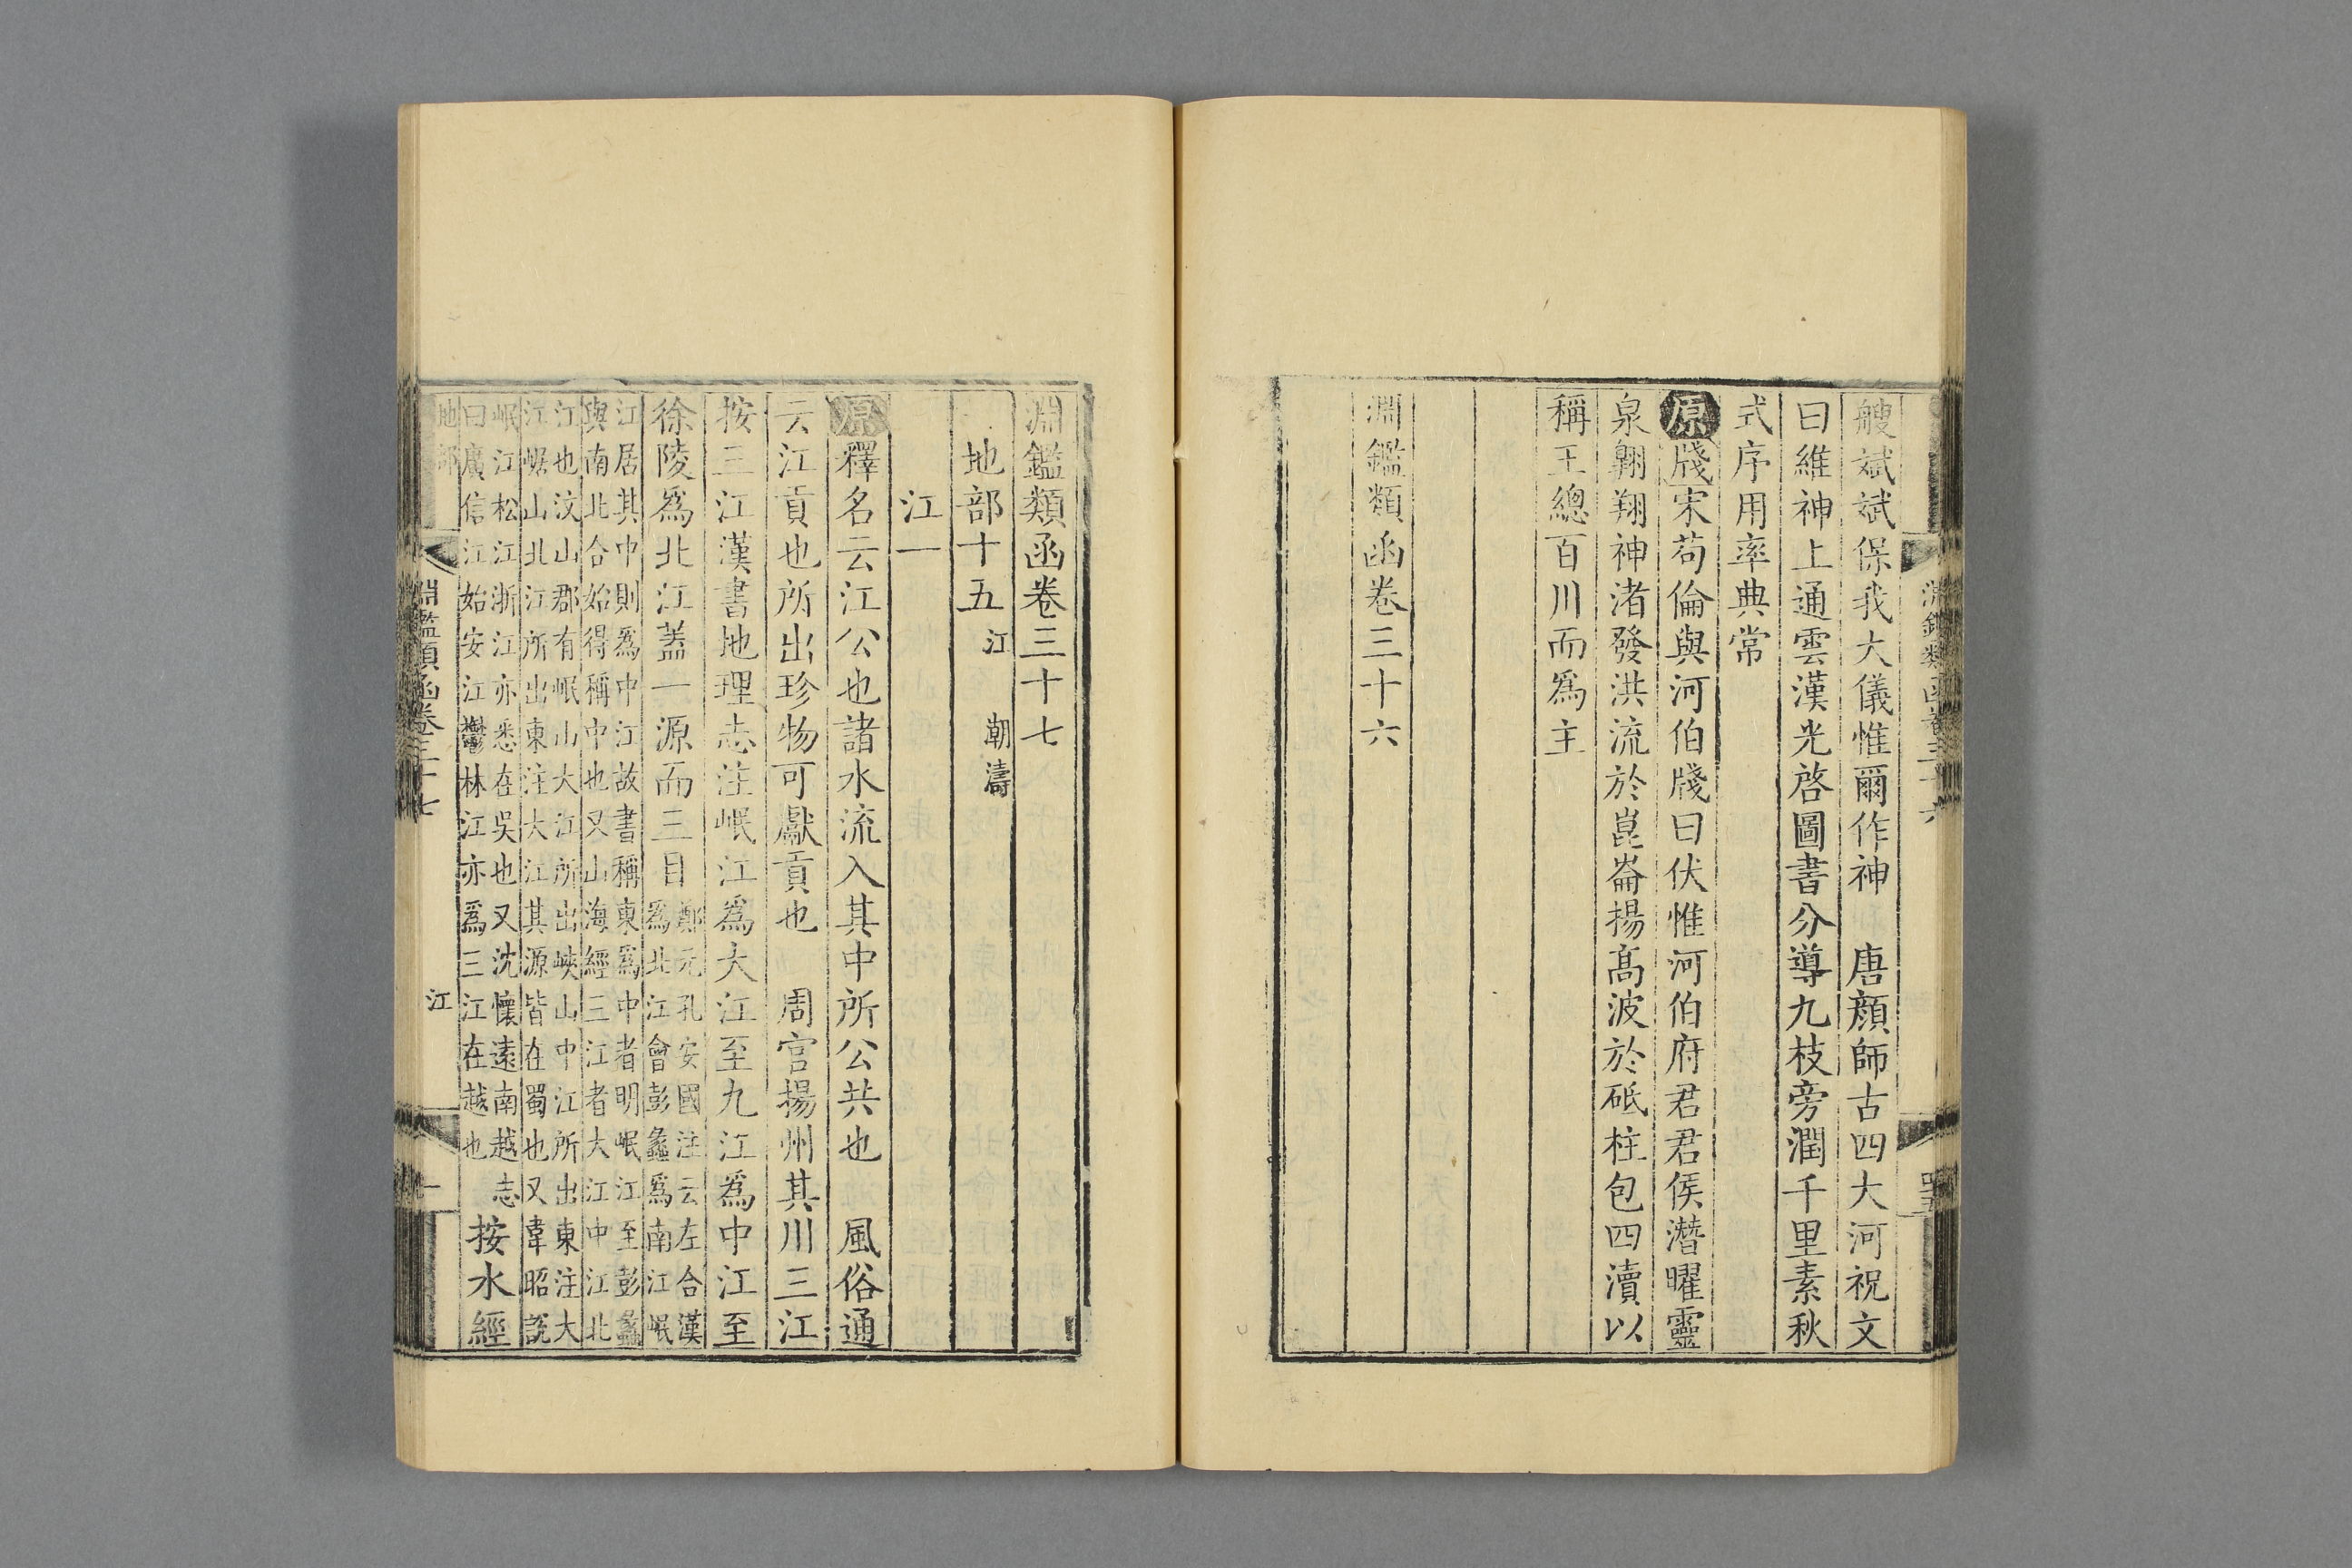 艘斌斌保我大儀惟爾作神　唐顏師古四大河祝文
曰維神上通雲漢光啓圖書分導九枝旁潤千里素秋
式序用率典常
原牋宋苟倫與河伯牋曰伏惟河伯府君君侯潛曜靈
泉翱翔神渚發洪流於崑崙揚髙波於砥柱包四瀆以
稱王總百川而爲主
淵鑑類函卷三十六
淵鑑類函卷三十七
地部十五 江　朝 濤
江一
原釋名云江公也諸水流入其中所公共也　風俗通
云江貢也所出珍物可獻貢也　周官揚州其川三江
按三江漢書地理志注岷江爲大江至九江爲中江至
徐陵爲北江蓋一源而三目
鄭元孔安國注云左合漢
爲北江會彭蠡爲南江岷
江居其中則爲中江故書稱東爲中者明岷江至彭蠡
與南北合始得稱中也又山海經三江者大江中江北
江也汶山郡有岷山大江所出峽山中江所出東注大
江崌山北江所出東注大江其源皆在蜀也又韋昭説
岷江松江浙江亦悉在吳也又沈懷遠南越志
曰廣信江始安江鬱林江亦爲三江在越也
按水經
地部
淵鑑類函卷三十七
江
一